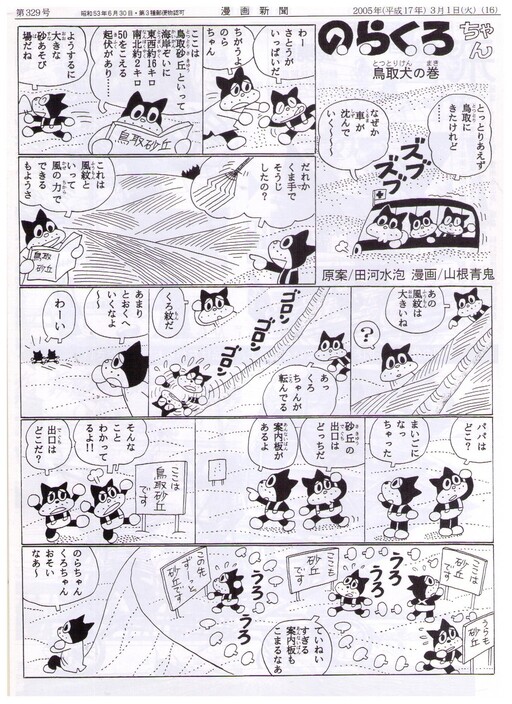 第329号
昭和53年6月30日・第3種郵便物認可
漫画新聞
2005年(平成17年) 3月1日(火) (16)
のらくろちゃん
とっとりけん まき
鳥取犬の巻
とっとりあえず
鳥取に
きたけれど
……
なぜか
車が
沈んで
いく〜〜
ズブ
ズブ
原案/田河水泡 漫画/山根青鬼
わー
さとうが
いっぱいだ!
ちがうよ
のら
ちゃん
ここは
鳥取砂丘といって
海岸ぞいに
東西約16キロ
南北約2キロ
50をこえる
起伏があり…
鳥取砂丘
ようするに
大きな
砂あそび
場だね
だれか
くま手で
そうじ
したの?
これは
風紋と
いって
風の力で
できる
もようさ
鳥取
砂丘
あの
風紋は
大きいね
?
あっ
くろ
ちゃんが
転んでる
ゴロン
ゴロン
ゴロン
くろ紋だ
あまり
とおくへ
いくなよ
〜〜
わーい
パパは
どこ?
まいごに
なっ
ちゃった
砂丘の
出口は
どっちだ
案内板が
あるよ
ここは
鳥取砂丘
です
そんな
こと
わかって
るよ!!
出口は
どこだ?
うらも
砂丘
ここは
砂丘です
うろ
うろ
ここも
砂丘です
ていねい
すぎる
案内板も
こまるなあ
うろ
うろ
この先
ずーっと
砂丘です
のらちゃん
くろちゃん
おそい
なあ〜